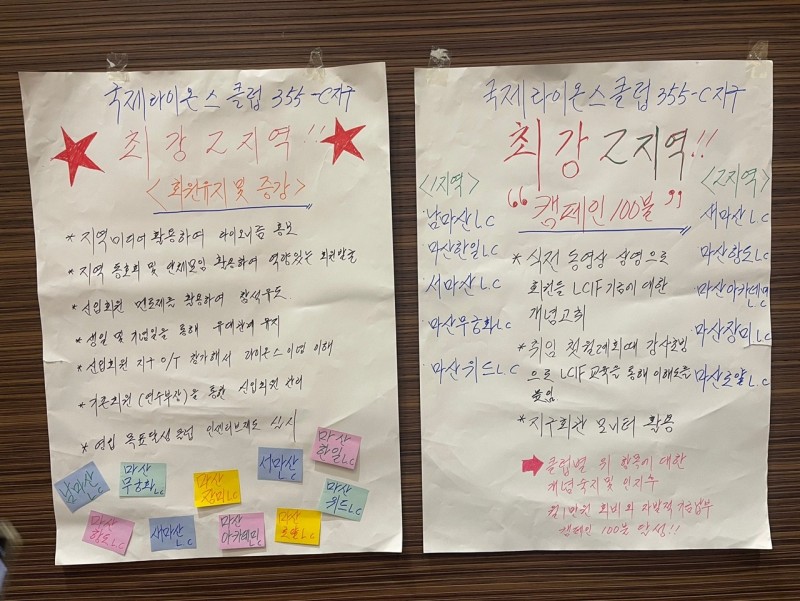 국제라이온스클럽 355-C지구
최강 Z지역!!
<회원유지 및 증강>
* 지역미디어 활용하여 라이오니즘 홍보
* 지역 동호회 및 단체모임 활용하여 역량있는 회원발굴
* 신입회원 멘토제를 활용하여 참석유도
* 생일 및 기념일을 통해 유대관계 유지
* 신입회원 지구 O/T 참가해서 라이온스이념 이해
* 기존회원 (연수부장)을 통한 신입회원 관리
* 영입 목표달성 클럽 인센티브제도 실시
마산
한일L.C
서마산
L.C
마산
무궁화L.C
남마산
L.C
마산
장미L.C
마산
위드L.C
마산
황토L.C
새마산
L.C
마산
아카데미L.C
마산
로얄L.C
국제라이온스클럽 355-C지구
최강 Z지역!!
"캠페인 100불"
<1지역>
남마산L.C
마산한일L.C
서마산L.C
마산무궁화L.C
마산위드L.C
* 식전 동영상 상영으로
회원들 LCIF기금에 대한
개념고취
* 취임 첫월례회때 강사초빙
으로 LCIF교육을 통해 이해도를
높임
* 지구회관 모니터 활용
<2지역>
새마산L.C
마산황토L.C
마산아카데미L.C
마산장미L.C
마산로얄L.C
클럽별 위 항목에 대한
개념숙지 및 인지후
회비와 자발적 기금납부
캠페인 100불 달성!!